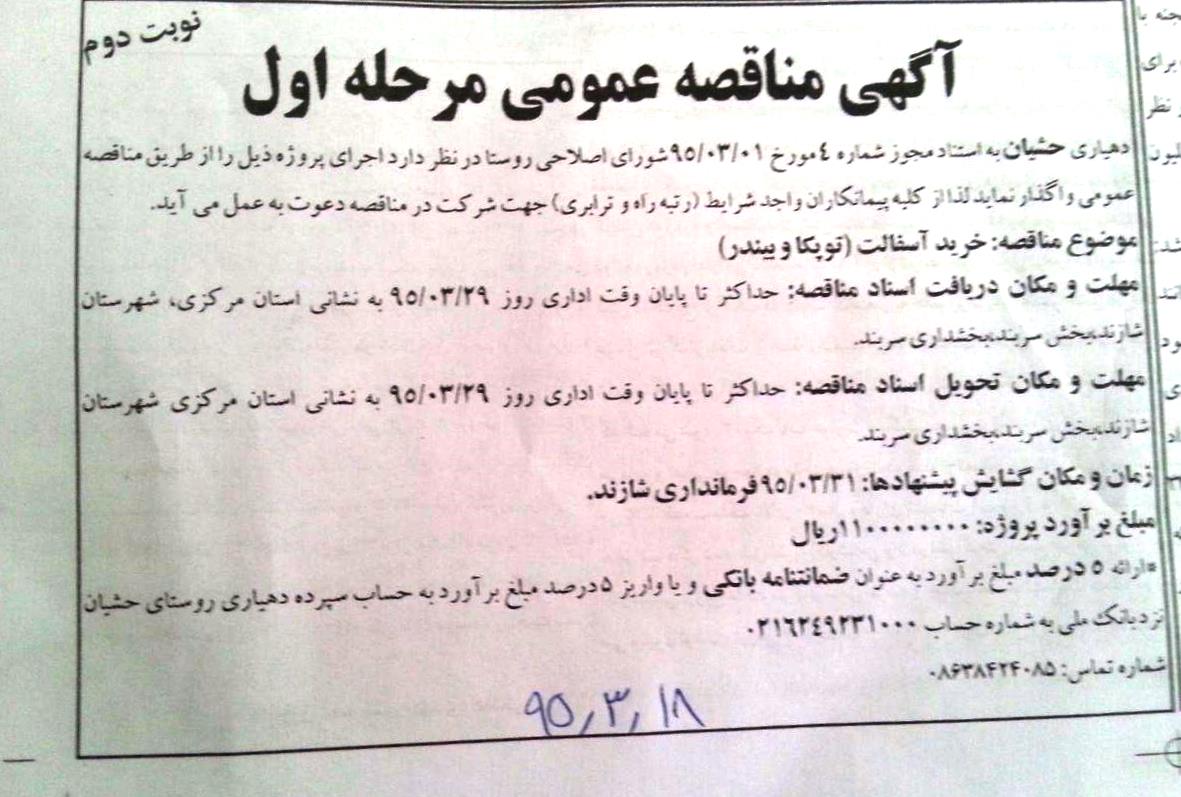 نوبت دوم
آگهی مناقصه عمومی مرحله اول
دهیاری حشیان به استناد مجوز شماره ٤ مورخ ۹۵/۰۳/۰۱ شورای اصلاحی روستا در نظر دارد اجرای پروژه ذیل را از طریق مناقصه
عمومی واگذار نماید لذا از کلیه پیمانکاران واجد شرایط (رتبه راه و ترابری) جهت شرکت در مناقصه دعوت به عمل می آید.
موضوع مناقصه: خرید آسفالت (توپکا و بیندر)
مهلت و مکان دریافت اسناد مناقصه: حداکثر تا پایان وقت اداری روز ۹۵/۰۳/۲۹ به نشانی استان مرکزی، شهرستان
شازند،بخش سربند،بخشداری سربند.
مهلت و مکان تحویل اسناد مناقصه: حداکثر تا پایان وقت اداری روز ۹۵/۰۳/۲۹ به نشانی استان مرکزی شهرستان
شازند،بخش سربند،بخشداری سربند.
زمان و مکان گشایش پیشنهادها: ۹۵/۰۳/۳۱ فرمانداری شازند.
مبلغ برآورد پروژه: ۱۱۰۰۰۰۰۰۰۰ ریال
*ارائه ۵ درصد مبلغ برآورد به عنوان ضمانتنامه بانکی و یا واریز ۵ درصد مبلغ برآورد به حساب سپرده دهیاری روستای حشیان
نزد بانک ملی به شماره حساب ۰۲۱٦۲٤۹۲۳۱۰۰۰
شماره تماس: ۰۸۶۳۸۴۲۴۰۸۵
۹۵,۳,۱۸
جنه با
برای
نظر
لیون